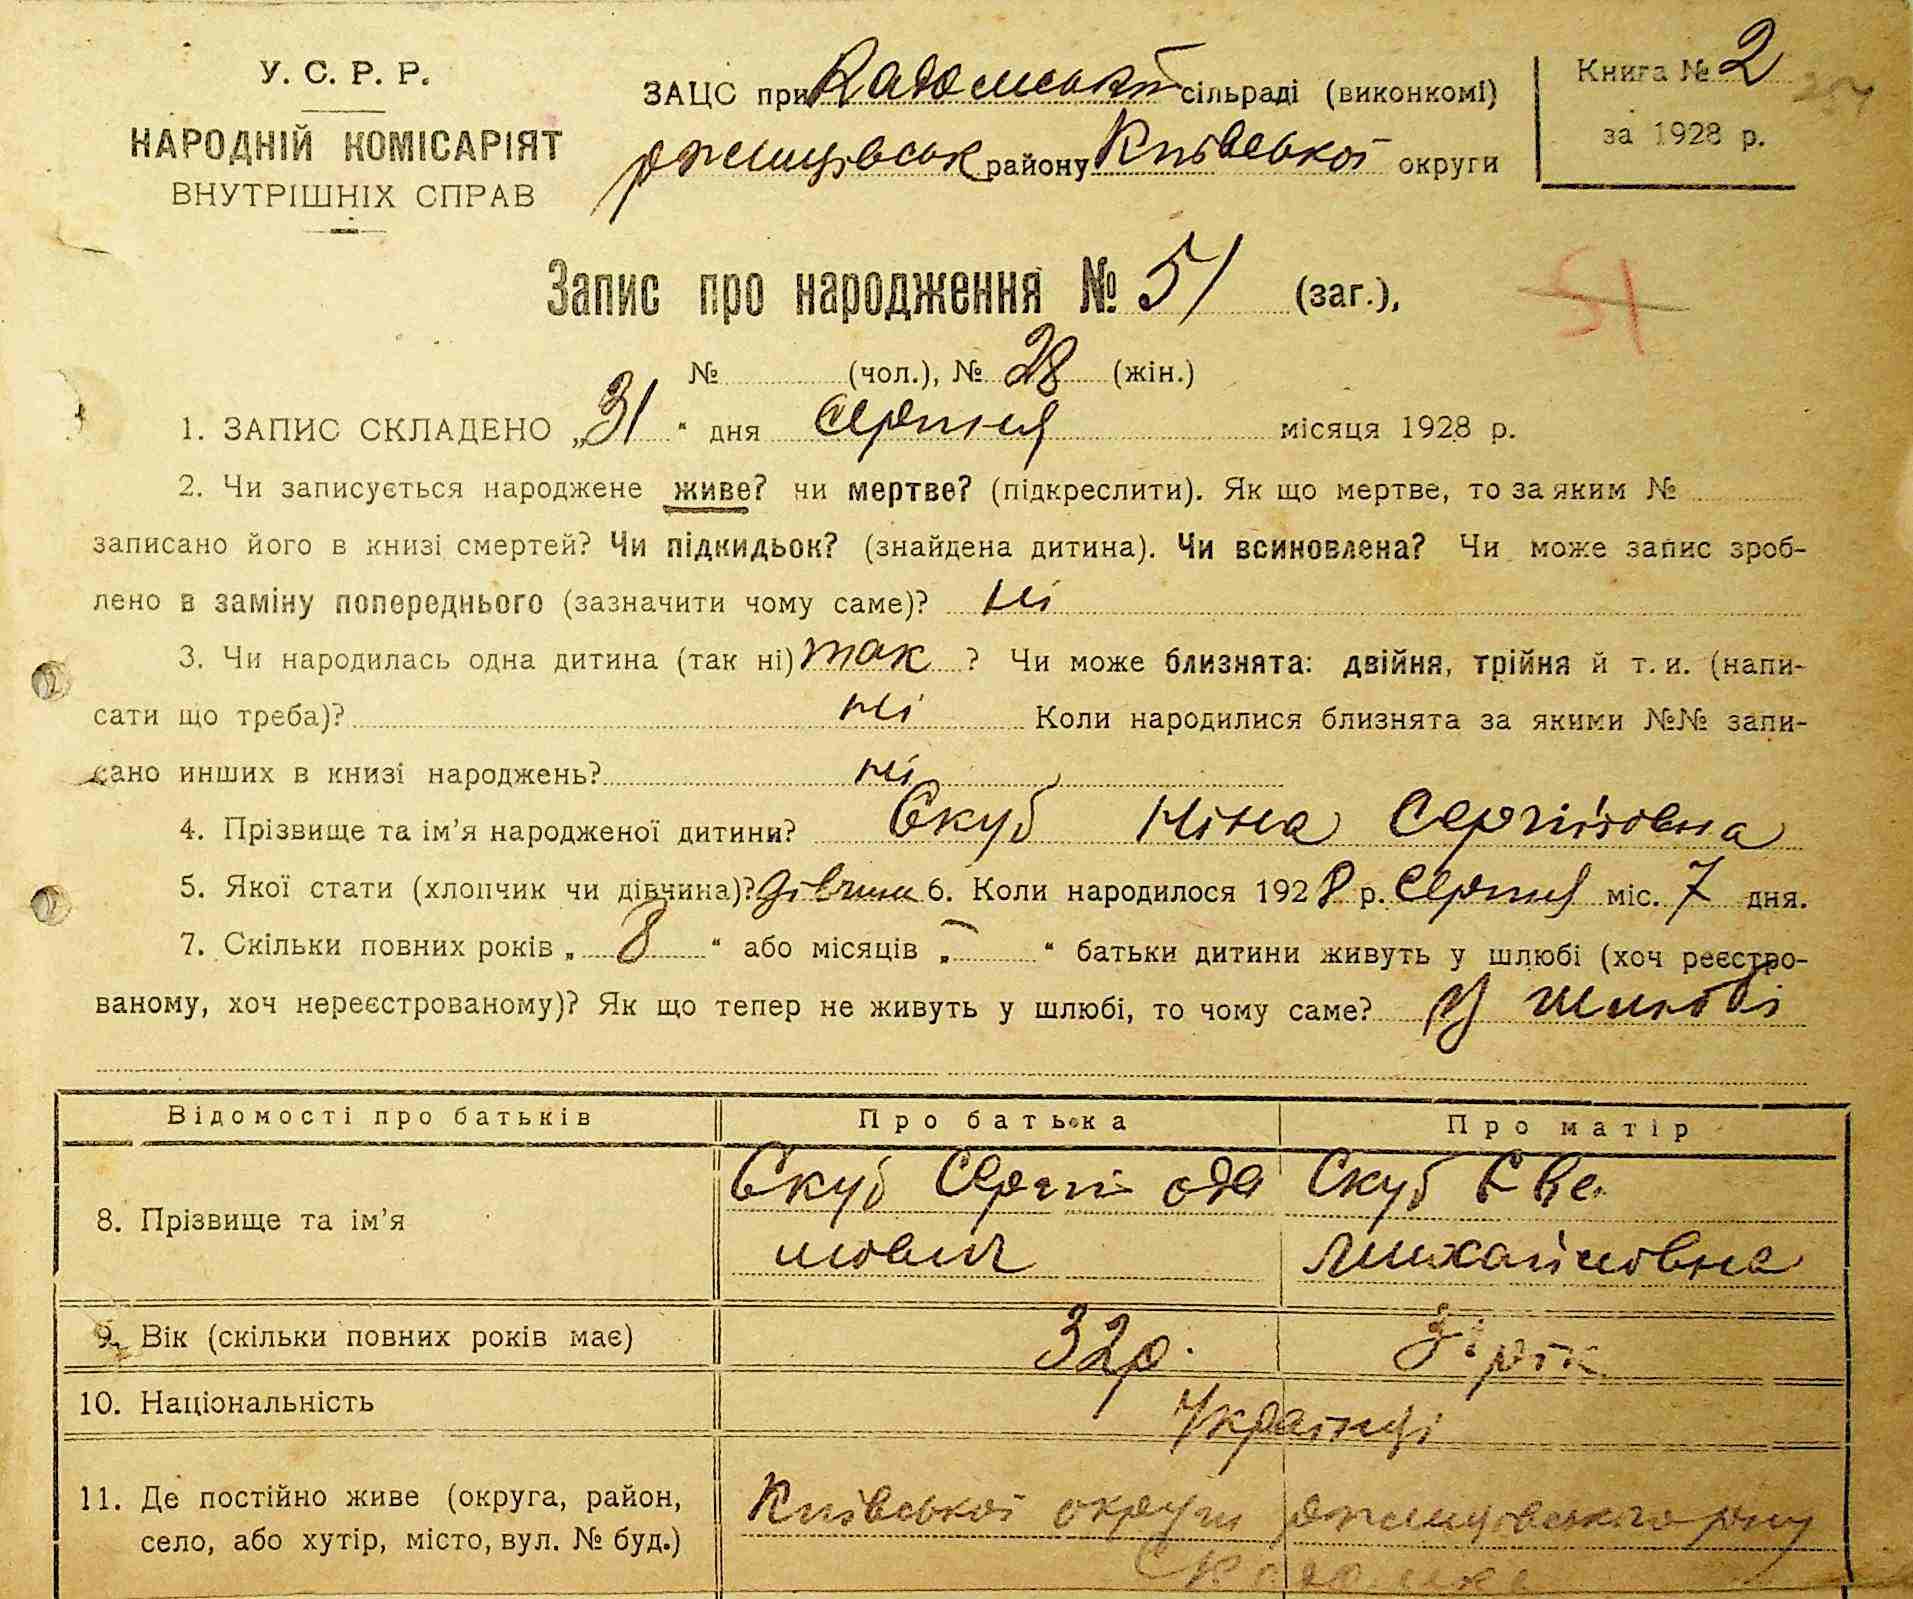 У. С. Р. Р.
НАРОДНІЙ КОМІСАРІЯТ
ВНУТРІШНІХ СПРАВ
ЗАЦС при Кадомській сільраді (виконкомі)
ржищівськ району Київської округи
Книга № 2
за 1928 р.
Запис про народження № 51 (заг.),
51
№ (чол.), № 28 (жін.)
1. ЗАПИС СКЛАДЕНО „31" дня серпня місяця 1928 р.
2. Чи записується народжене живе? чи мертве? (підкреслити). Як що мертве, то за яким №
записано його в книзі смертей? Чи підкидьок? (знайдена дитина). Чи всиновлена? Чи може запис зроб-
лено в заміну попереднього (зазначити чому саме)? ні
3. Чи народилась одна дитина (так ні) так ? Чи може близнята: двійня, трійня й т. и. (напи-
сати що треба)? ні Коли народилися близнята за якими №№ запи-
сано инших в книзі народжень? ні
4. Прізвище та ім'я народженої дитини? Скуб Ніна Сергіївна
5. Якої стати (хлопчик чи дівчина)? дівчина 6. Коли народилося 1928 р. серпня міс. 7 дня.
7. Скільки повних років „ 8 " або місяців „ – " батьки дитини живуть у шлюбі (хоч реєстро-
ваному, хоч нереєстрованому)? Як що тепер не живуть у шлюбі, то чому саме? У шлюбі
Відомості про батьків Про батька Про матір
8. Прізвище та ім'я Скуб Сергій Скуб Єва
Михайловна
9. Вік (скільки повних років має) 32 р. рік
10. Національність Українці
11. Де постійно живе (округа, район, Київської округи ржищівського р-ну
село, або хутір, місто, вул. № буд.)